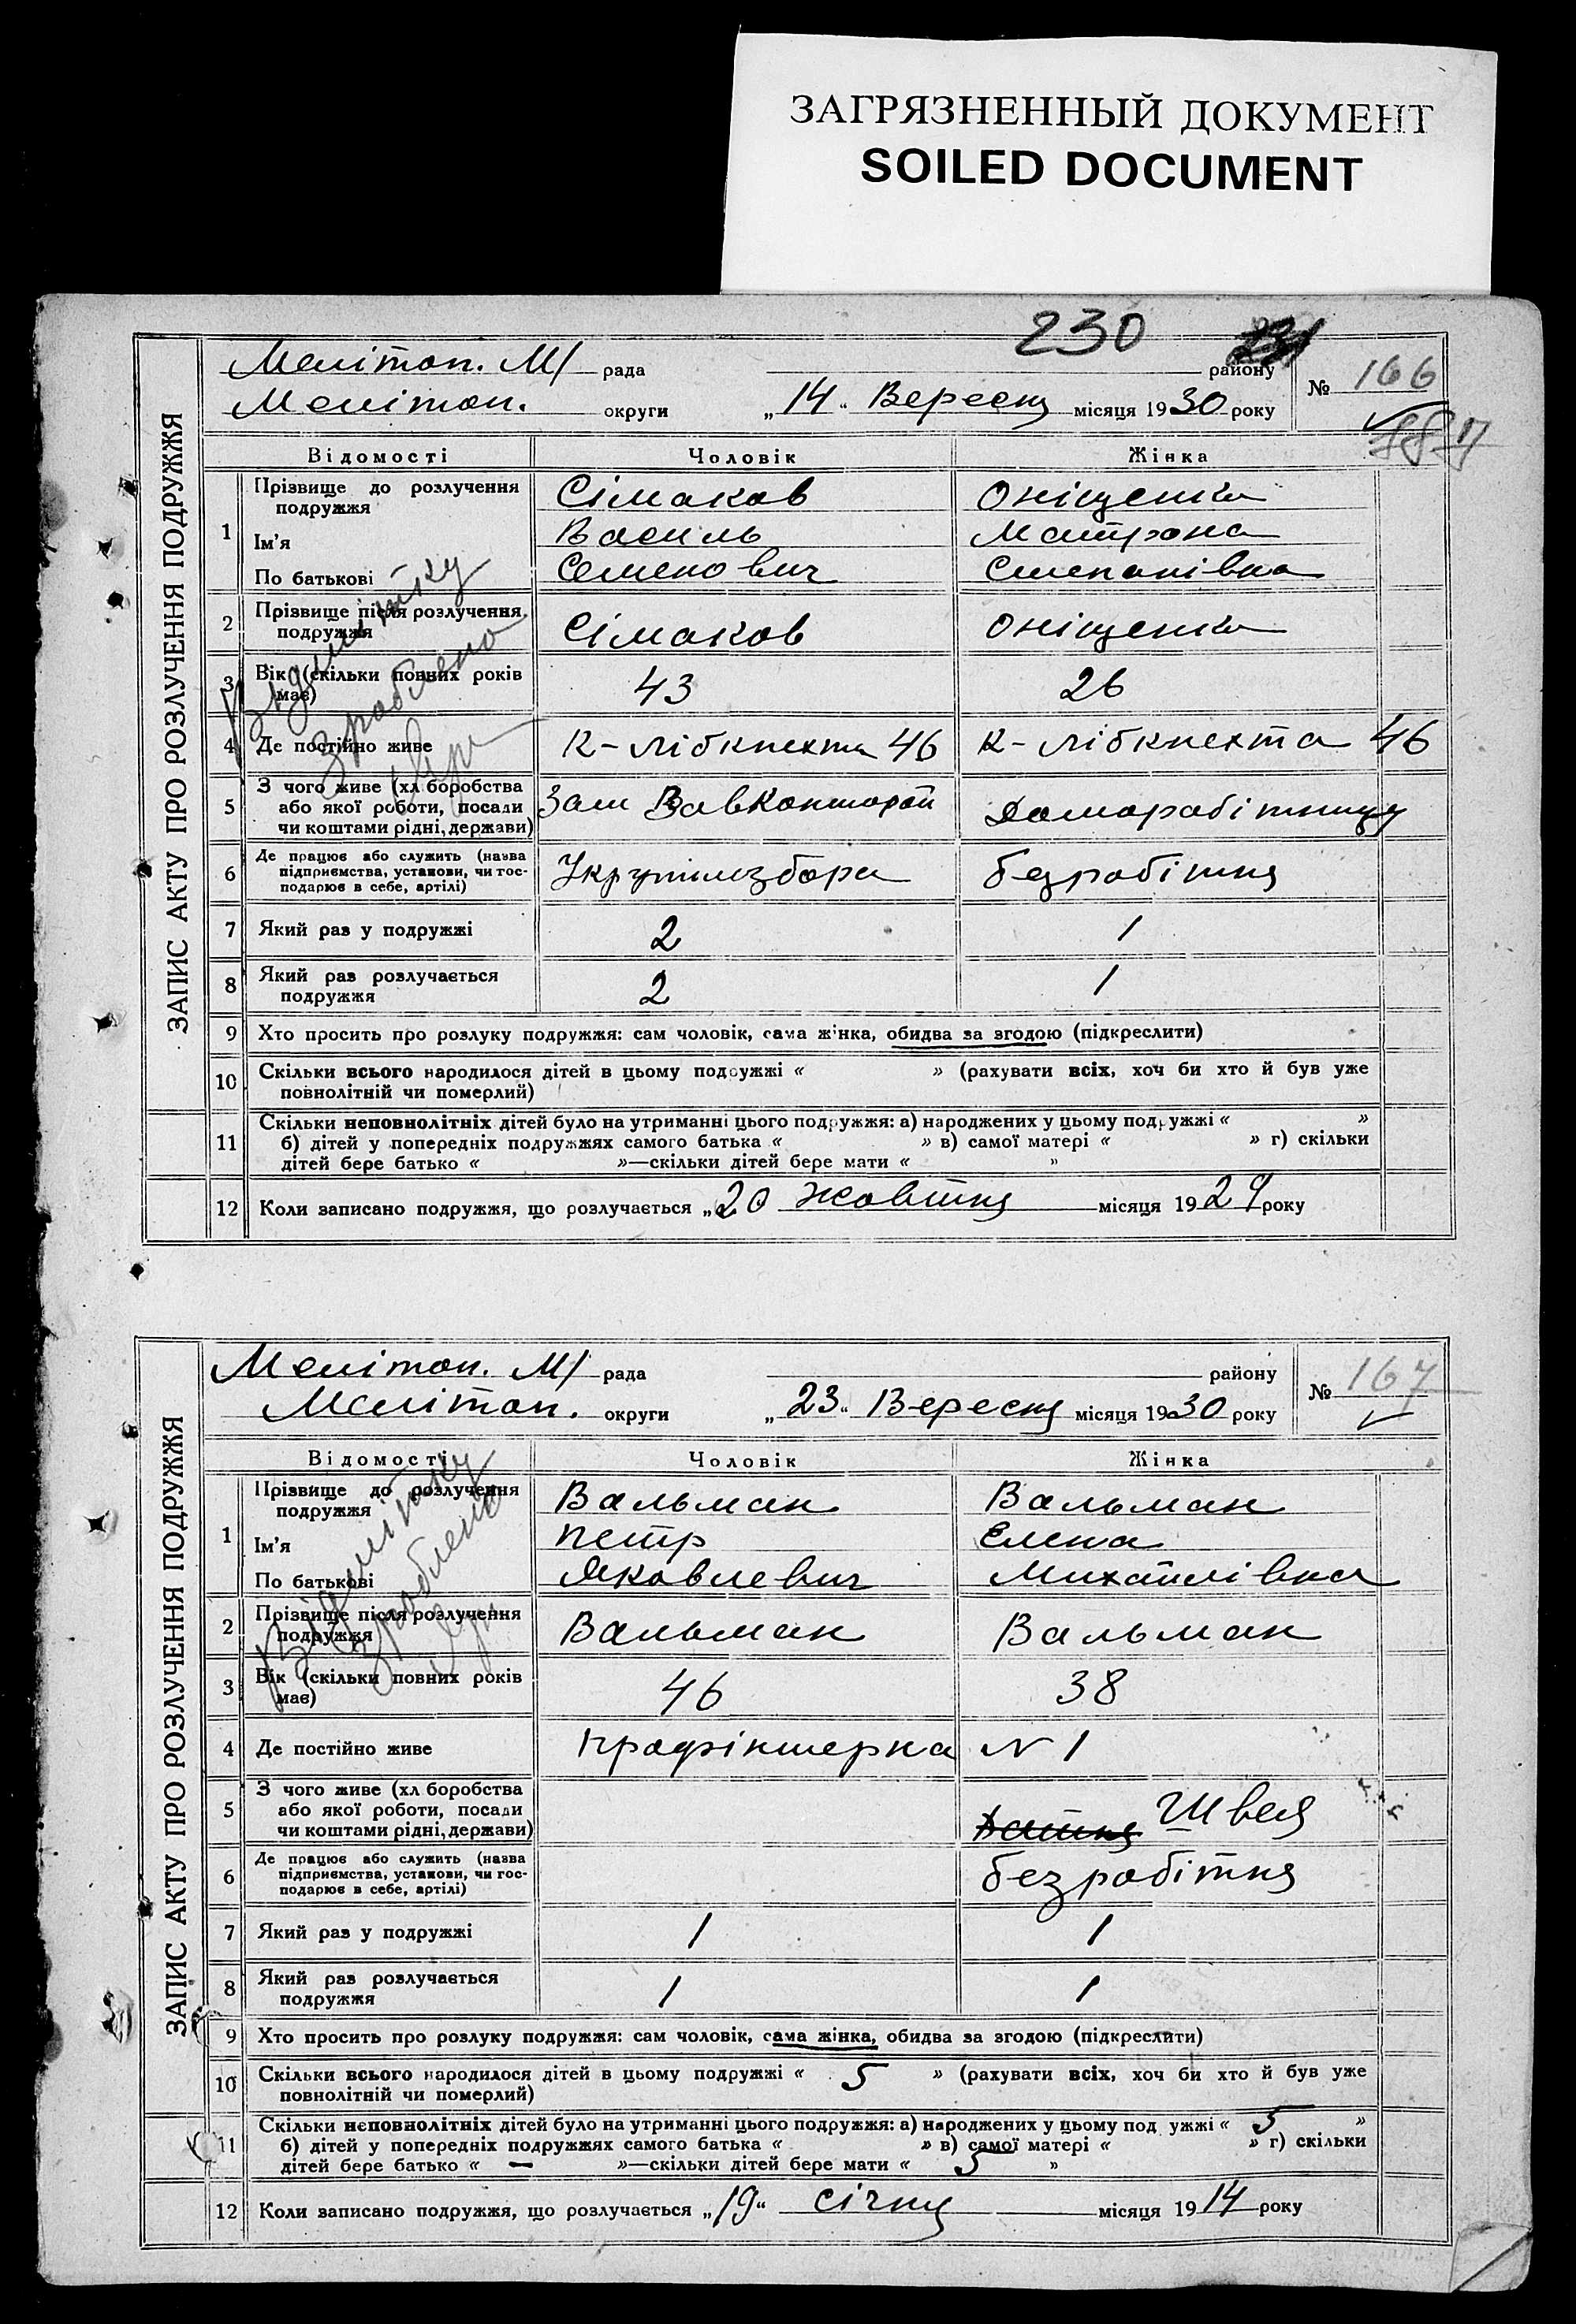 ЗАГРЯЗНЕННЫЙ ДОКУМЕНТ
SOILED DOCUMENT
230
ЗАПИС АКТУ ПРО РОЗЛУЧЕННЯ ПОДРУЖЖЯ
Меліт​оп. М/ рада району № 166
Мелітоп. округи „14“ Вересня місяця 1930 року
Відомості Чоловік Жінка
1 Прізвище до розлучення подружжя Сімаков Оніщенко
Ім'я Василь Матрона
По батькові Семенович Степанівна
2 Прізвище після розлучення подружжя Сімаков Оніщенко
3 Вік (скільки повних років має) 43 26
4 Де постійно живе К-Лібкнехта 46 К-Лібкнехта 46
5 З чого живе (хліборобства або якої роботи, посади чи коштами рідні, держави) Зам Доморобітниця
6 Де працює або служить (назва підприємства, установи, чи господарює в себе, артілі) безробітня
7 Який раз у подружжі 2 1
8 Який раз розлучається подружжя 2 1
Відмітку
зроблено
9 Хто просить про розлуку подружжя: сам чоловік, сама жінка, обидва за згодою (підкреслити)
10 Скільки всього народилося дітей в цьому подружжі « » (рахувати всіх, хоч би хто й був уже
повнолітній чи померлий)
11 Скільки неповнолітніх дітей було на утриманні цього подружжя: а) народжених у цьому подружжі « »
б) дітей у попередніх подружжях самого батька « » в) самої матері « » г) скільки
дітей бере батько « »—скільки дітей бере мати « »
12 Коли записано подружжя, що розлучається „20 жовтня місяця 1929 року
ЗАПИС АКТУ ПРО РОЗЛУЧЕННЯ ПОДРУЖЖЯ
Мелітоп. М/ рада району № 167
Мелітоп. округи „23“ Вересня місяця 1930 року
Відомості Чоловік Жінка
1 Прізвище до розлучення подружжя Вальман Вальман
Ім'я Петр Елена
По батькові Яковлевич Михайлівна
2 Прізвище після розлучення подружжя Вальман Вальман
3 Вік (скільки повних років має) 46 38
4 Де постійно живе Профінтерна N 1
5 З чого живе (хліборобства або якої роботи, посади чи коштами рідні, держави) Швея
6 Де працює або служить (назва підприємства, установи, чи господарює в себе, артілі) безробітня
7 Який раз у подружжі 1 1
8 Який раз розлучається подружжя 1 1
Відмітку
зроблено
9 Хто просить про розлуку подружжя: сам чоловік, сама жінка, обидва за згодою (підкреслити)
10 Скільки всього народилося дітей в цьому подружжі « 5 » (рахувати всіх, хоч би хто й був уже
повнолітній чи померлий)
11 Скільки неповнолітніх дітей було на утриманні цього подружжя: а) народжених у цьому подружжі « 5 »
б) дітей у попередніх подружжях самого батька « » в) самої матері « » г) скільки
дітей бере батько « — »—скільки дітей бере мати « 5 »
12 Коли записано подружжя, що розлучається „19“ січня місяця 1914 року